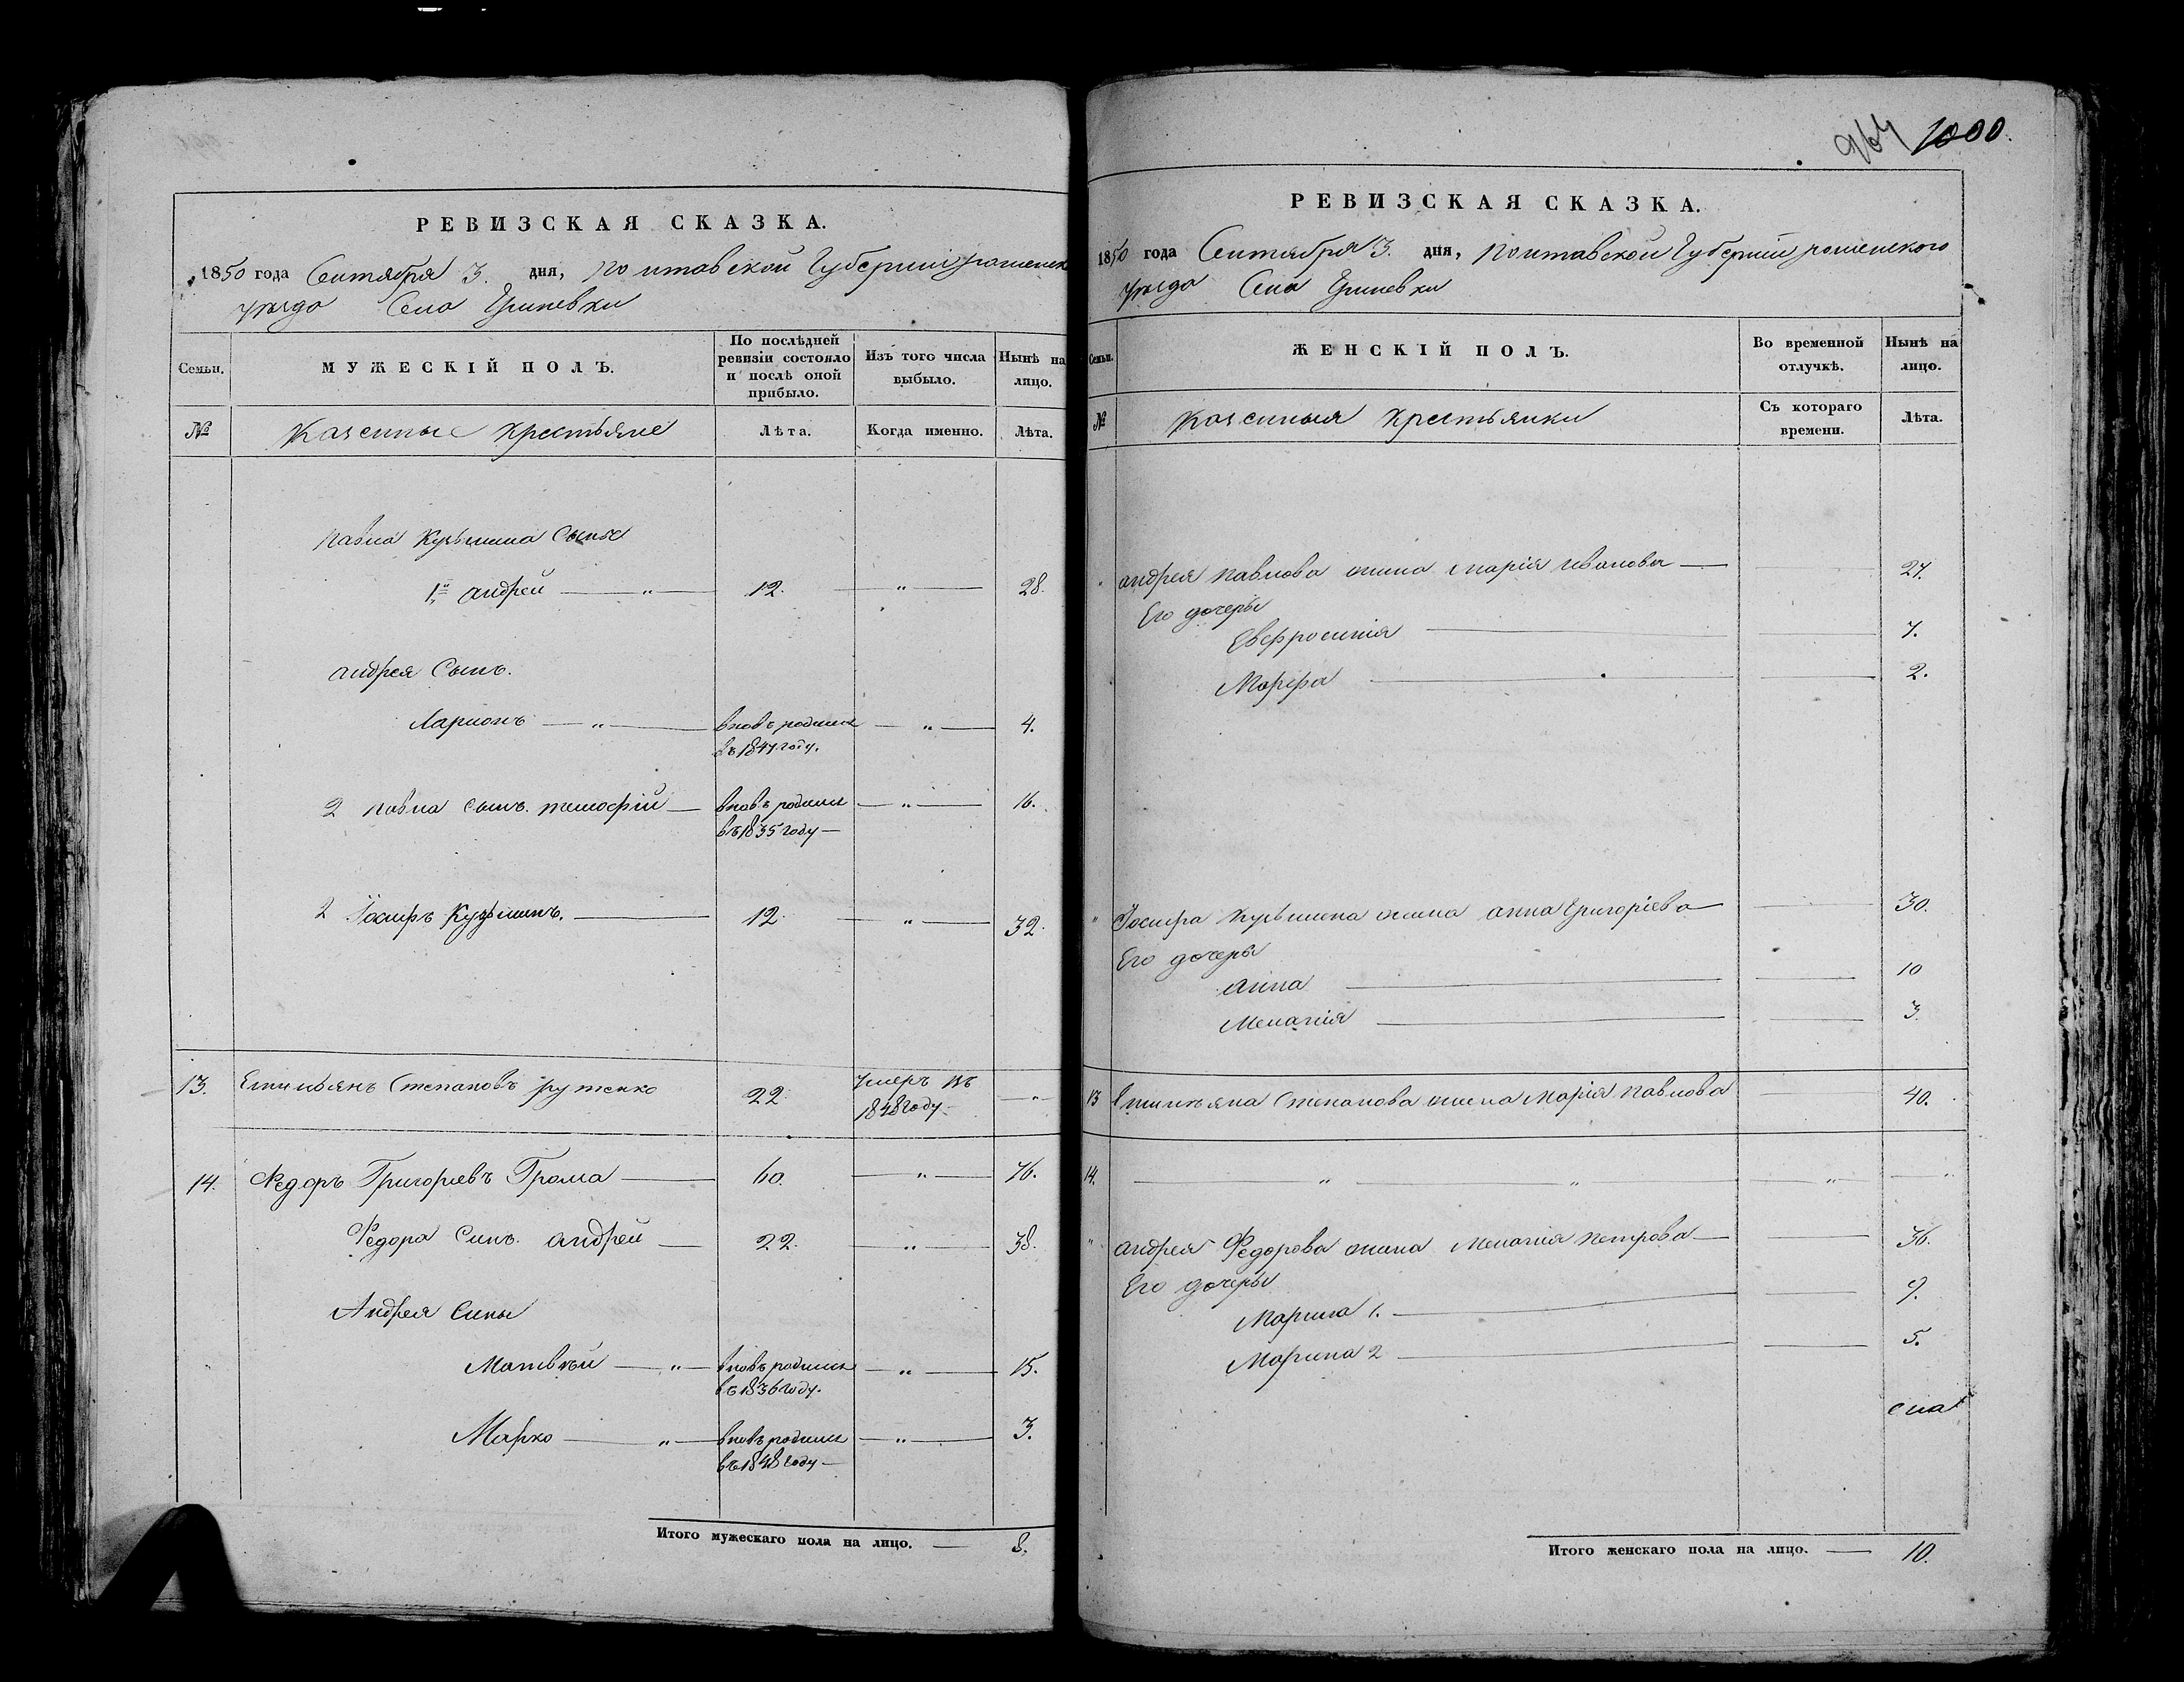 964 1000.
РЕВИЗСКАЯ СКАЗКА.
1850 года Сентября 3. дня, Полтавской Губерніи роменск
уѣзда Села Гриневки
Семьи.
МУЖЕСКІЙ ПОЛЪ.
По послѣдней ревизіи состояло и послѣ оной прибыло.
Изъ того числа выбыло.
Нынѣ на лицо.
№
Казенные крестьяне
Лѣта.
Когда именно.
Лѣта.
Павла Кузьмина Сыны
1й андрей — " — 12. — " — 28.
андрея Сынъ.
Ларионъ — " — вновь родился — " — 4.
въ 1847 году.
2 павла сынъ. тимофій — вновь родился — " — 16.
въ 1835 году —
2 Іосифъ Кузьминъ. — 12. — " — 32.
13. Емильянъ Степановъ рутенко 22. умеръ въ — " —
1848 году.
14. Федоръ Григорьевъ Грома — 60. — " — 76.
Федора Синъ. андрей — 22. — " — 38.
Андрея Сины
Матвѣй — " — вновь родился — " — 15.
въ 1836 году.
Марко — " — вновь родился — " — 3.
въ 1848 году —
Итого мужескаго пола на лицо. — 8.
РЕВИЗСКАЯ СКАЗКА.
1850 года Сентября 3. дня, Полтавской Губерніи роменского
уѣзда Села Гриневки
Семьи.
ЖЕНСКІЙ ПОЛЪ.
Во временной отлучкѣ.
Нынѣ на лицо.
№
Казенныя крестьянки
Съ котораго времени.
Лѣта.
" андрея павлова жена марія иванова — 27.
Его дочеры
Евфросинія — 7.
Марфа — 2.
" Іосифа кузьмина жена анна Григоріева — 30.
Его дочеры
анна — 10
Меланія — 3.
13 Емильяна Степанова жена Марія павлова — 40.
14. — " — " — " — "
" андрея Федорова жена Меланія петрова — 36.
Его дочеры
Марина 1. — 9.
Марина 2 — 5.
Итого женскаго пола на лицо. — 10.